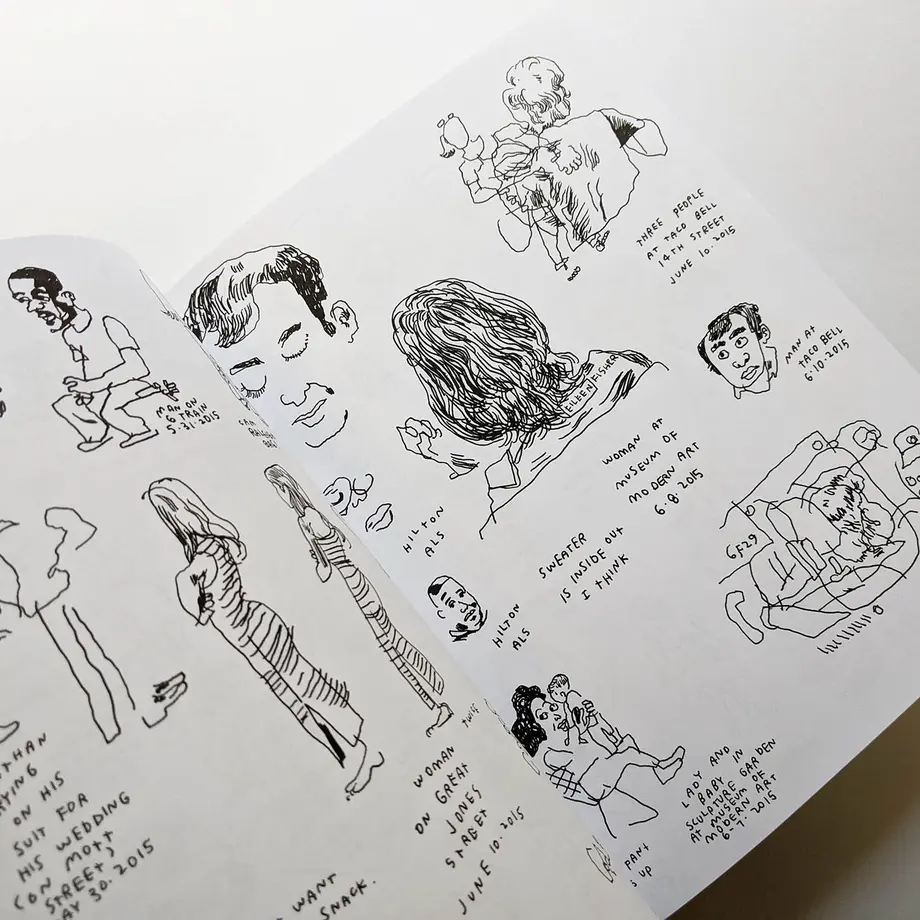 MAN ON
6 TRAIN
5.31.2015
ON HIS
SUIT FOR
HIS WEDDING
(ON MOTT
STREET)
AY 30.2015
WANT
SNACK.
TWICE
WOMAN
ON GREAT
JONES
STREET
JUNE 10.2015
THREE PEOPLE
AT TACO BELL
14TH STREET
JUNE 10.2015
EILEEN FISHER
MAN AT
TACO BELL
6.10.2015
WOMAN AT
MUSEUM OF
MODERN ART
6.8.2015
HILTON
ALS
SWEATER
IS INSIDE OUT
I THINK
HILTON
ALS
6F29
LADY AND
BABY IN
SCULPTURE GARDEN
AT MUSEUM OF
MODERN ART
6-7.2015
PANT
S UP